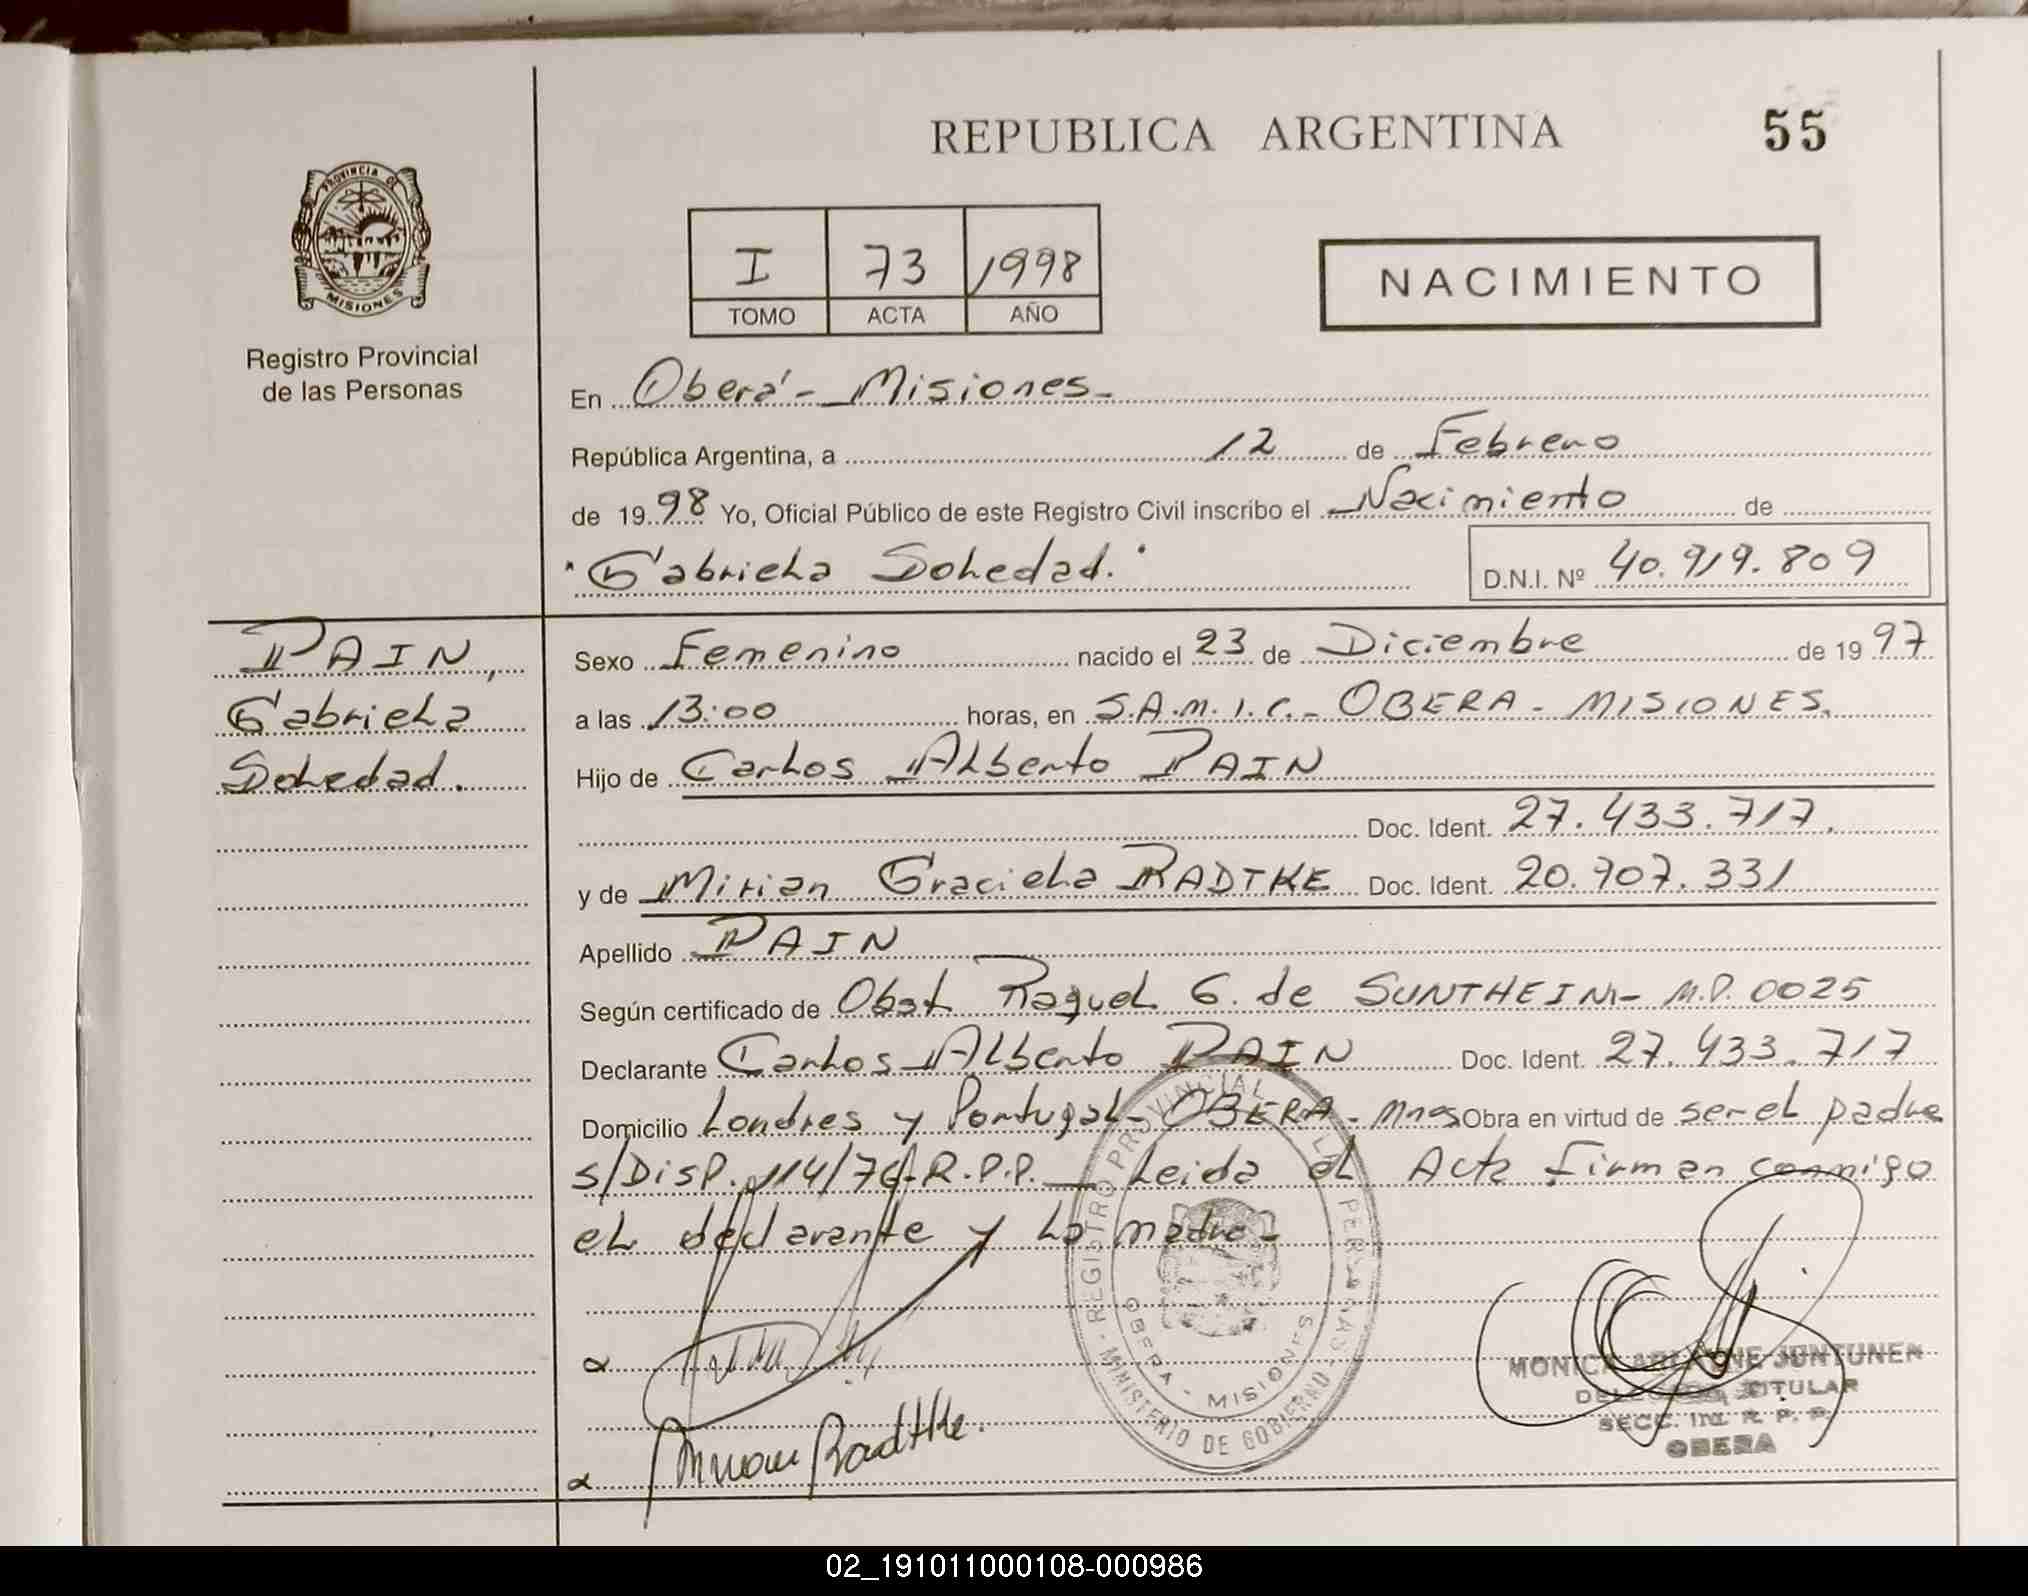 REPUBLICA ARGENTINA 55
PROVINCIA DE
MISIONES
Registro Provincial
de las Personas
I 73 1998
TOMO ACTA AÑO
NACIMIENTO
En Oberá - Misiones -
República Argentina, a 12 de Febrero
de 1998 Yo, Oficial Público de este Registro Civil inscribo el Nacimiento de
"Gabriela Soledad."
D.N.I. Nº 40.919.809
PAIN,
Gabriela
Soledad.
Sexo Femenino nacido el 23 de Diciembre de 1997
a las 13:00 horas, en S.A.M.I.C. - OBERA - MISIONES.
Hijo de Carlos Alberto PAIN
Doc. Ident. 27.433.717.
y de Mirian Graciela RADTKE Doc. Ident. 20.907.331
Apellido PAIN
Según certificado de Obst Raquel G. de SUNTHEIM - M.P. 0025
Declarante Carlos Alberto PAIN Doc. Ident. 27.433.717
Domicilio Londres y Portugal - OBERA - Mnes Obra en virtud de ser el padre
s/Disp. 114/76-R.P.P. — Leida el Acta firman conmigo
el declarante y la madre -
REGISTRO PROVINCIAL DE LAS PERSONAS
MINISTERIO DE GOBIERNO
OBERA - MISIONES
Mirian Radtke.
MONICA JUNTUNEN
TITULAR
SECC. R. P. P.
OBERA
02_191011000108-000986